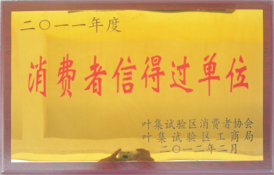 二〇一一年度
消费者信得过单位
叶集试验区消费者协会
叶集试验区工商局
二〇一二年二月